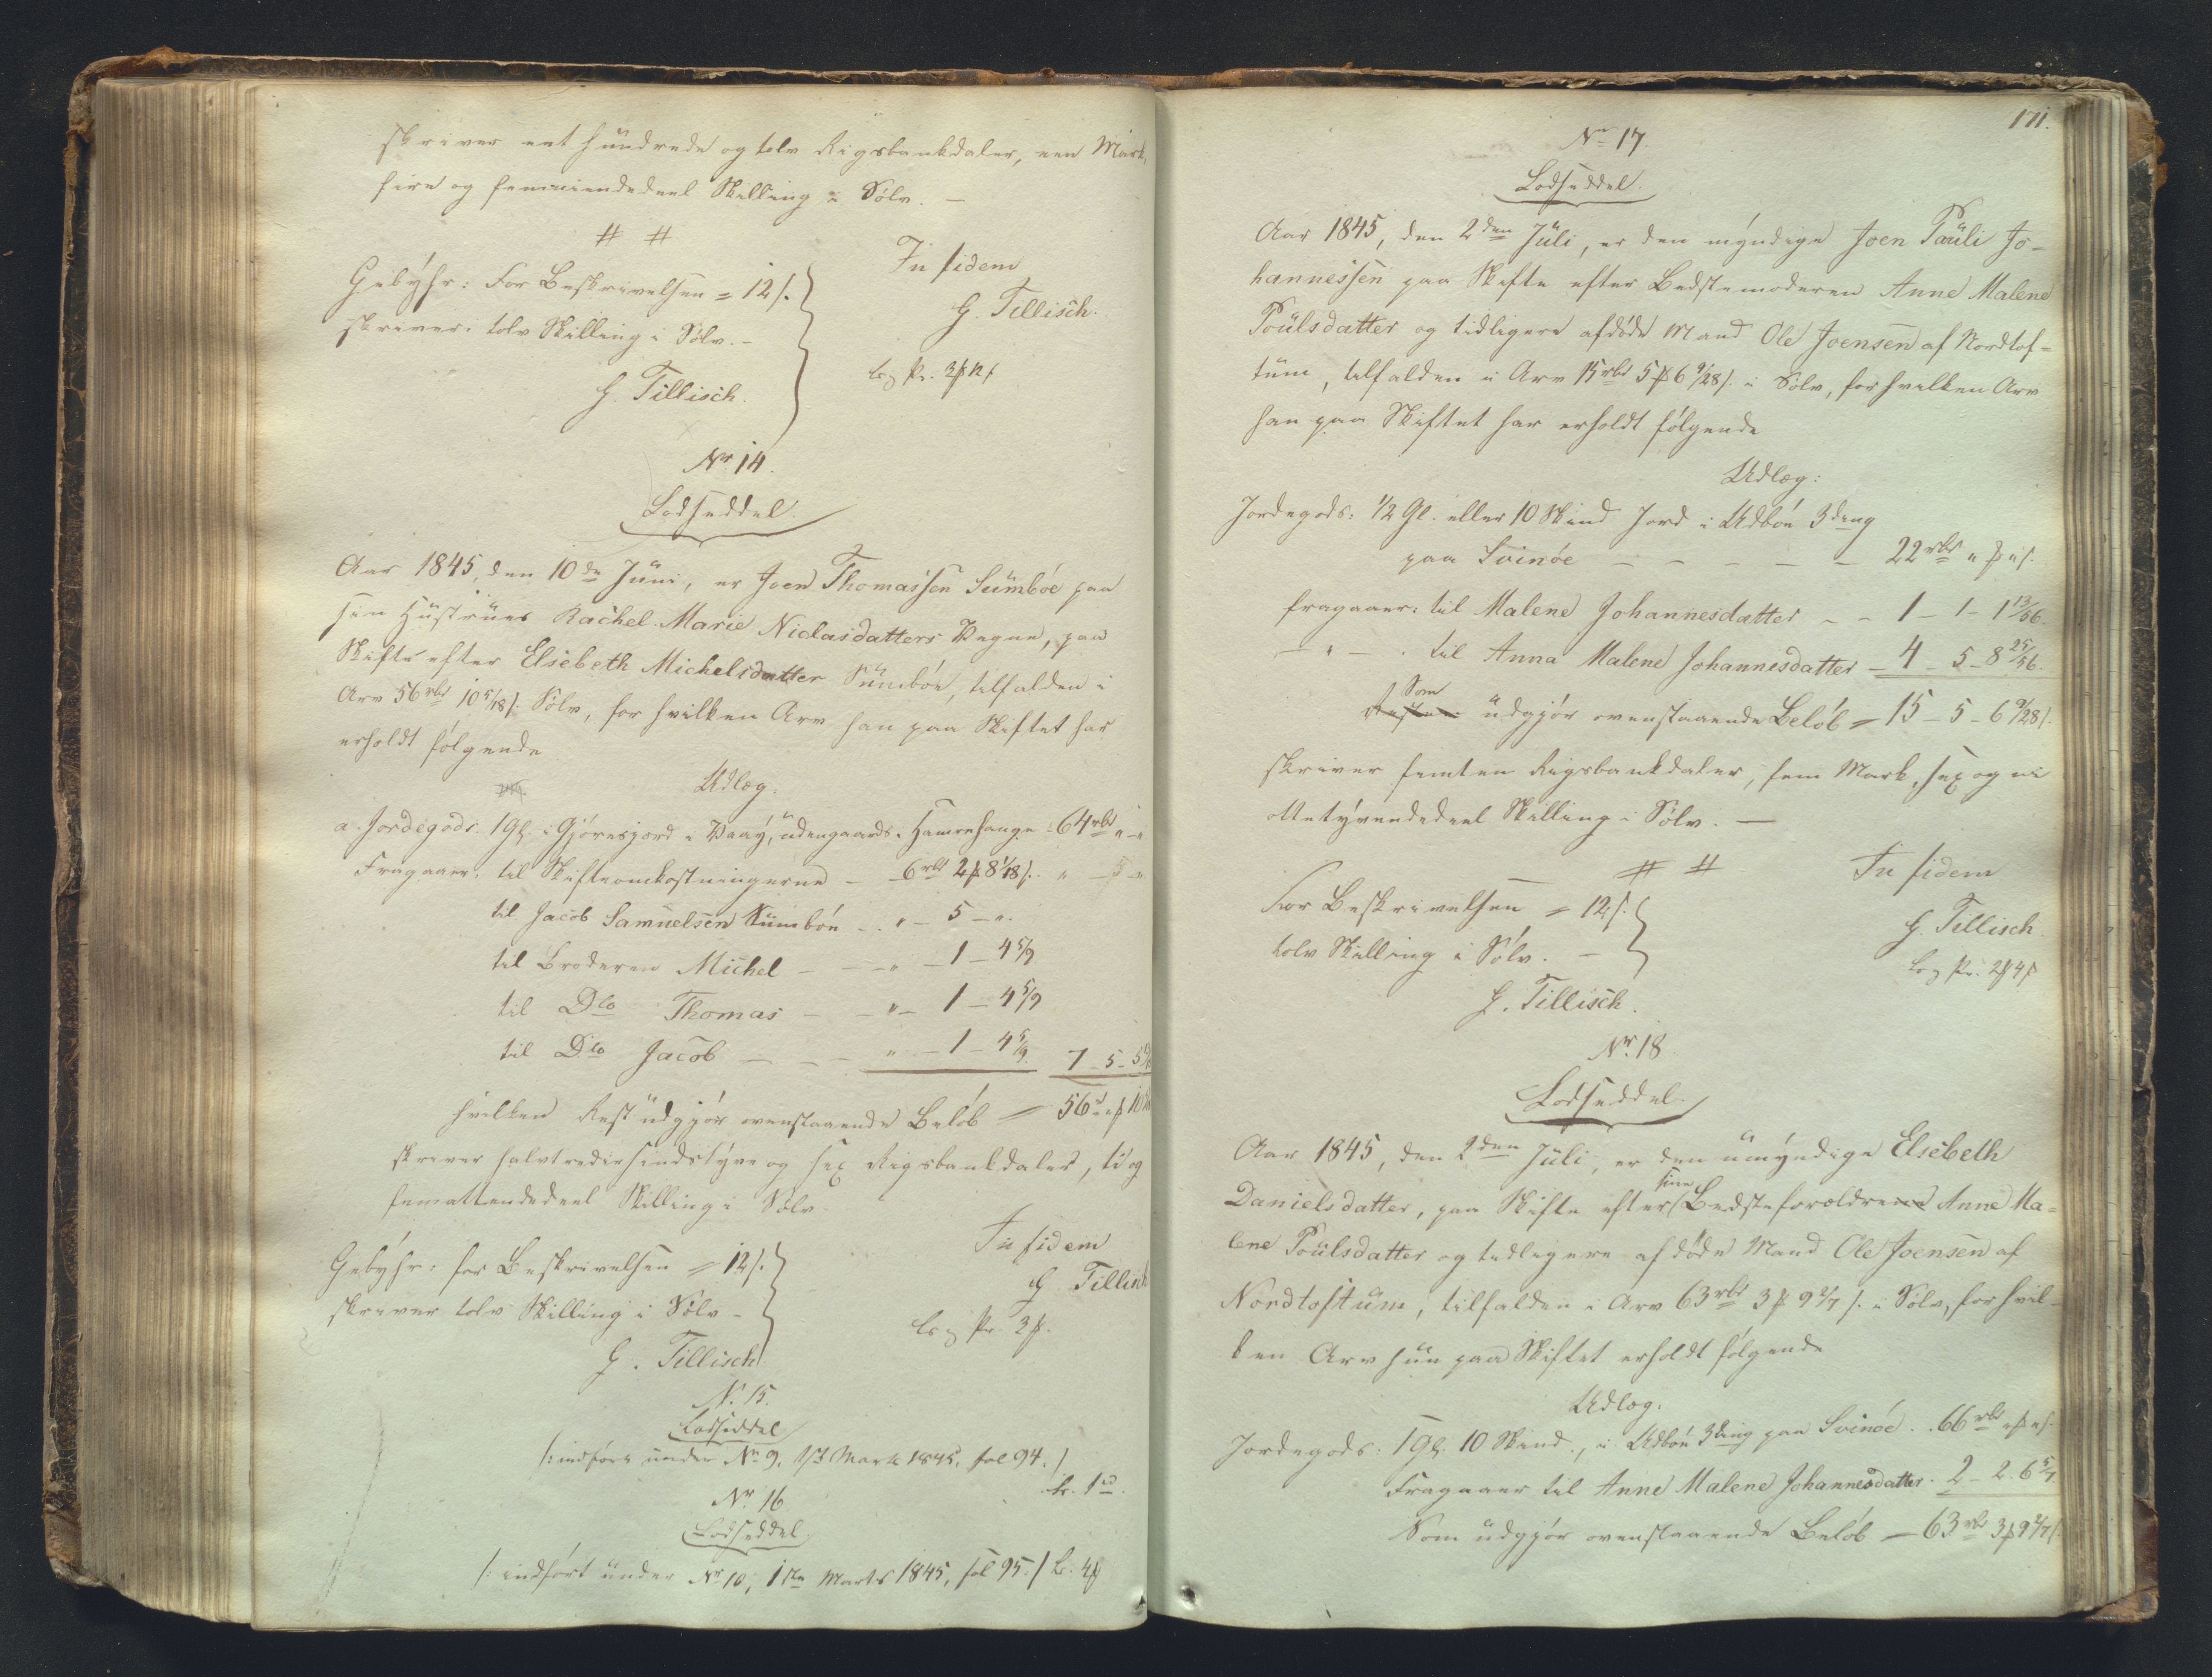 skriver eet hundrede og tolv Rigsbankdaler, een Mark,
fire og femniendedeel Skilling i Sølv. —
# #
In fidem
Gebyhr: For Beskrivelsen = 12 s.
G. Tillisch.
skriver: tolv Skilling i Sølv. -
G. Tillisch.
No 14.
Lodseddel.
Aar 1845, den 10de Juni, er Joen Thomassen Sumbøe paa
sin Hustrues Rachel Marie Niclasdatters Vegne, paa
Skifte efter Elsebeth Michelsdatter Sumbøe, tilfalden i
Arv 56 rbd 10 5/18 s. Sølv, for hvilken Arv han paa Skiftet har
erholdt følgende
Udlæg:
a. Jordegods: 1 Gl. i Gjørnisjord i Vaaÿ, udengaards i Hamrehauge - 64 rbd " - "
Fragaaer: til Skifteomkostningerne - 6 rbd 2 ß 8 1/18 s.
til Jacob Samuelsen Sumbøe - " - 5 - ".
til Broderen Michel - - " - 1 - 4 5/9
til Dto Thomas - - " - 1 - 4 5/9
til Dto Jacob - - " - 1 - 4 5/9. 7 - 5 - 5
hvilken Rest udgjør ovenstaaende Beløb = 56 " ß 10
skriver halvtredsindstyve og sex Rigsbankdaler, ti og
femattendedeel Skilling i Sølv.
In fidem
Gebyhr: for Beskrivelsen = 12 s.
G Tillisch
skriver tolv Skilling i Sølv -
G. Tillisch
No 15.
Lodseddel
/: indført under No 9, Marts 1845, fol 94. /
No 16
Lodseddel.
/: indført under No 10, 1ste Marts 1845, fol 95. /
171.
No 17.
Lodseddel.
Aar 1845, den 2den Juli, er den myndige Joen Pauli Jo-
hannessen paa Skifte efter Bedstemoderen Anne Malene
Poulsdatter og tidligere afdøde Mand Ole Joensen af Nordtof-
tum, tilfalden i Arv 15 rbd 5 ß 6 9/28 s. i Sølv, for hvilken Arv
han paa Skiftet har erholdt følgende
Udlæg:
Jordegods: 1/2 Gl. eller 10 Skind Jord i Udbøe 3ding
paa Svinøe - - - - - 22 rbd " ß " s.
fragaaer: til Malene Johannesdatter - - 1 - 1 - 1 13/56.
- " - . til Anna Malene Johannesdatter - 4 - 5 - 8 25/56.
Som udgjør ovenstaaende Beløb = 15 - 5 - 6 9/28 s.
skriver femten Rigsbankdaler, fem Mark, sex og ni
ottetyvendedeel Skilling i Sølv. —
# #
In fidem
For Beskrivelsen = 12 s.
G. Tillisch
tolv Skilling i Sølv. -
G. Tillisch.
No 18.
Lodseddel.
Aar 1845, den 2den Juli, er den umyndige Elsebeth
Danielsdatter, paa Skifte efter sine Bedsteforældrene Anne Ma-
lene Poulsdatter og tidligere afdøde Mand Ole Joensen af
Nordtoftum, tilfalden i Arv 63 rbd 3 ß 9 2/7 s. i Sølv, for hvil-
ken Arv hun paa Skiftet erholdt følgende
Udlæg.
Jordegods: 1 Gl. 10 Skind., i Udbøe 3ding paa Svinøe . 66 rbd " ß " s.
Fragaaer til Anne Malene Johannesdatter . 2 - 2 - 6 5/7
Som udgjør ovenstaaende Beløb - 63 rbd 3 ß 9 2/7 s.